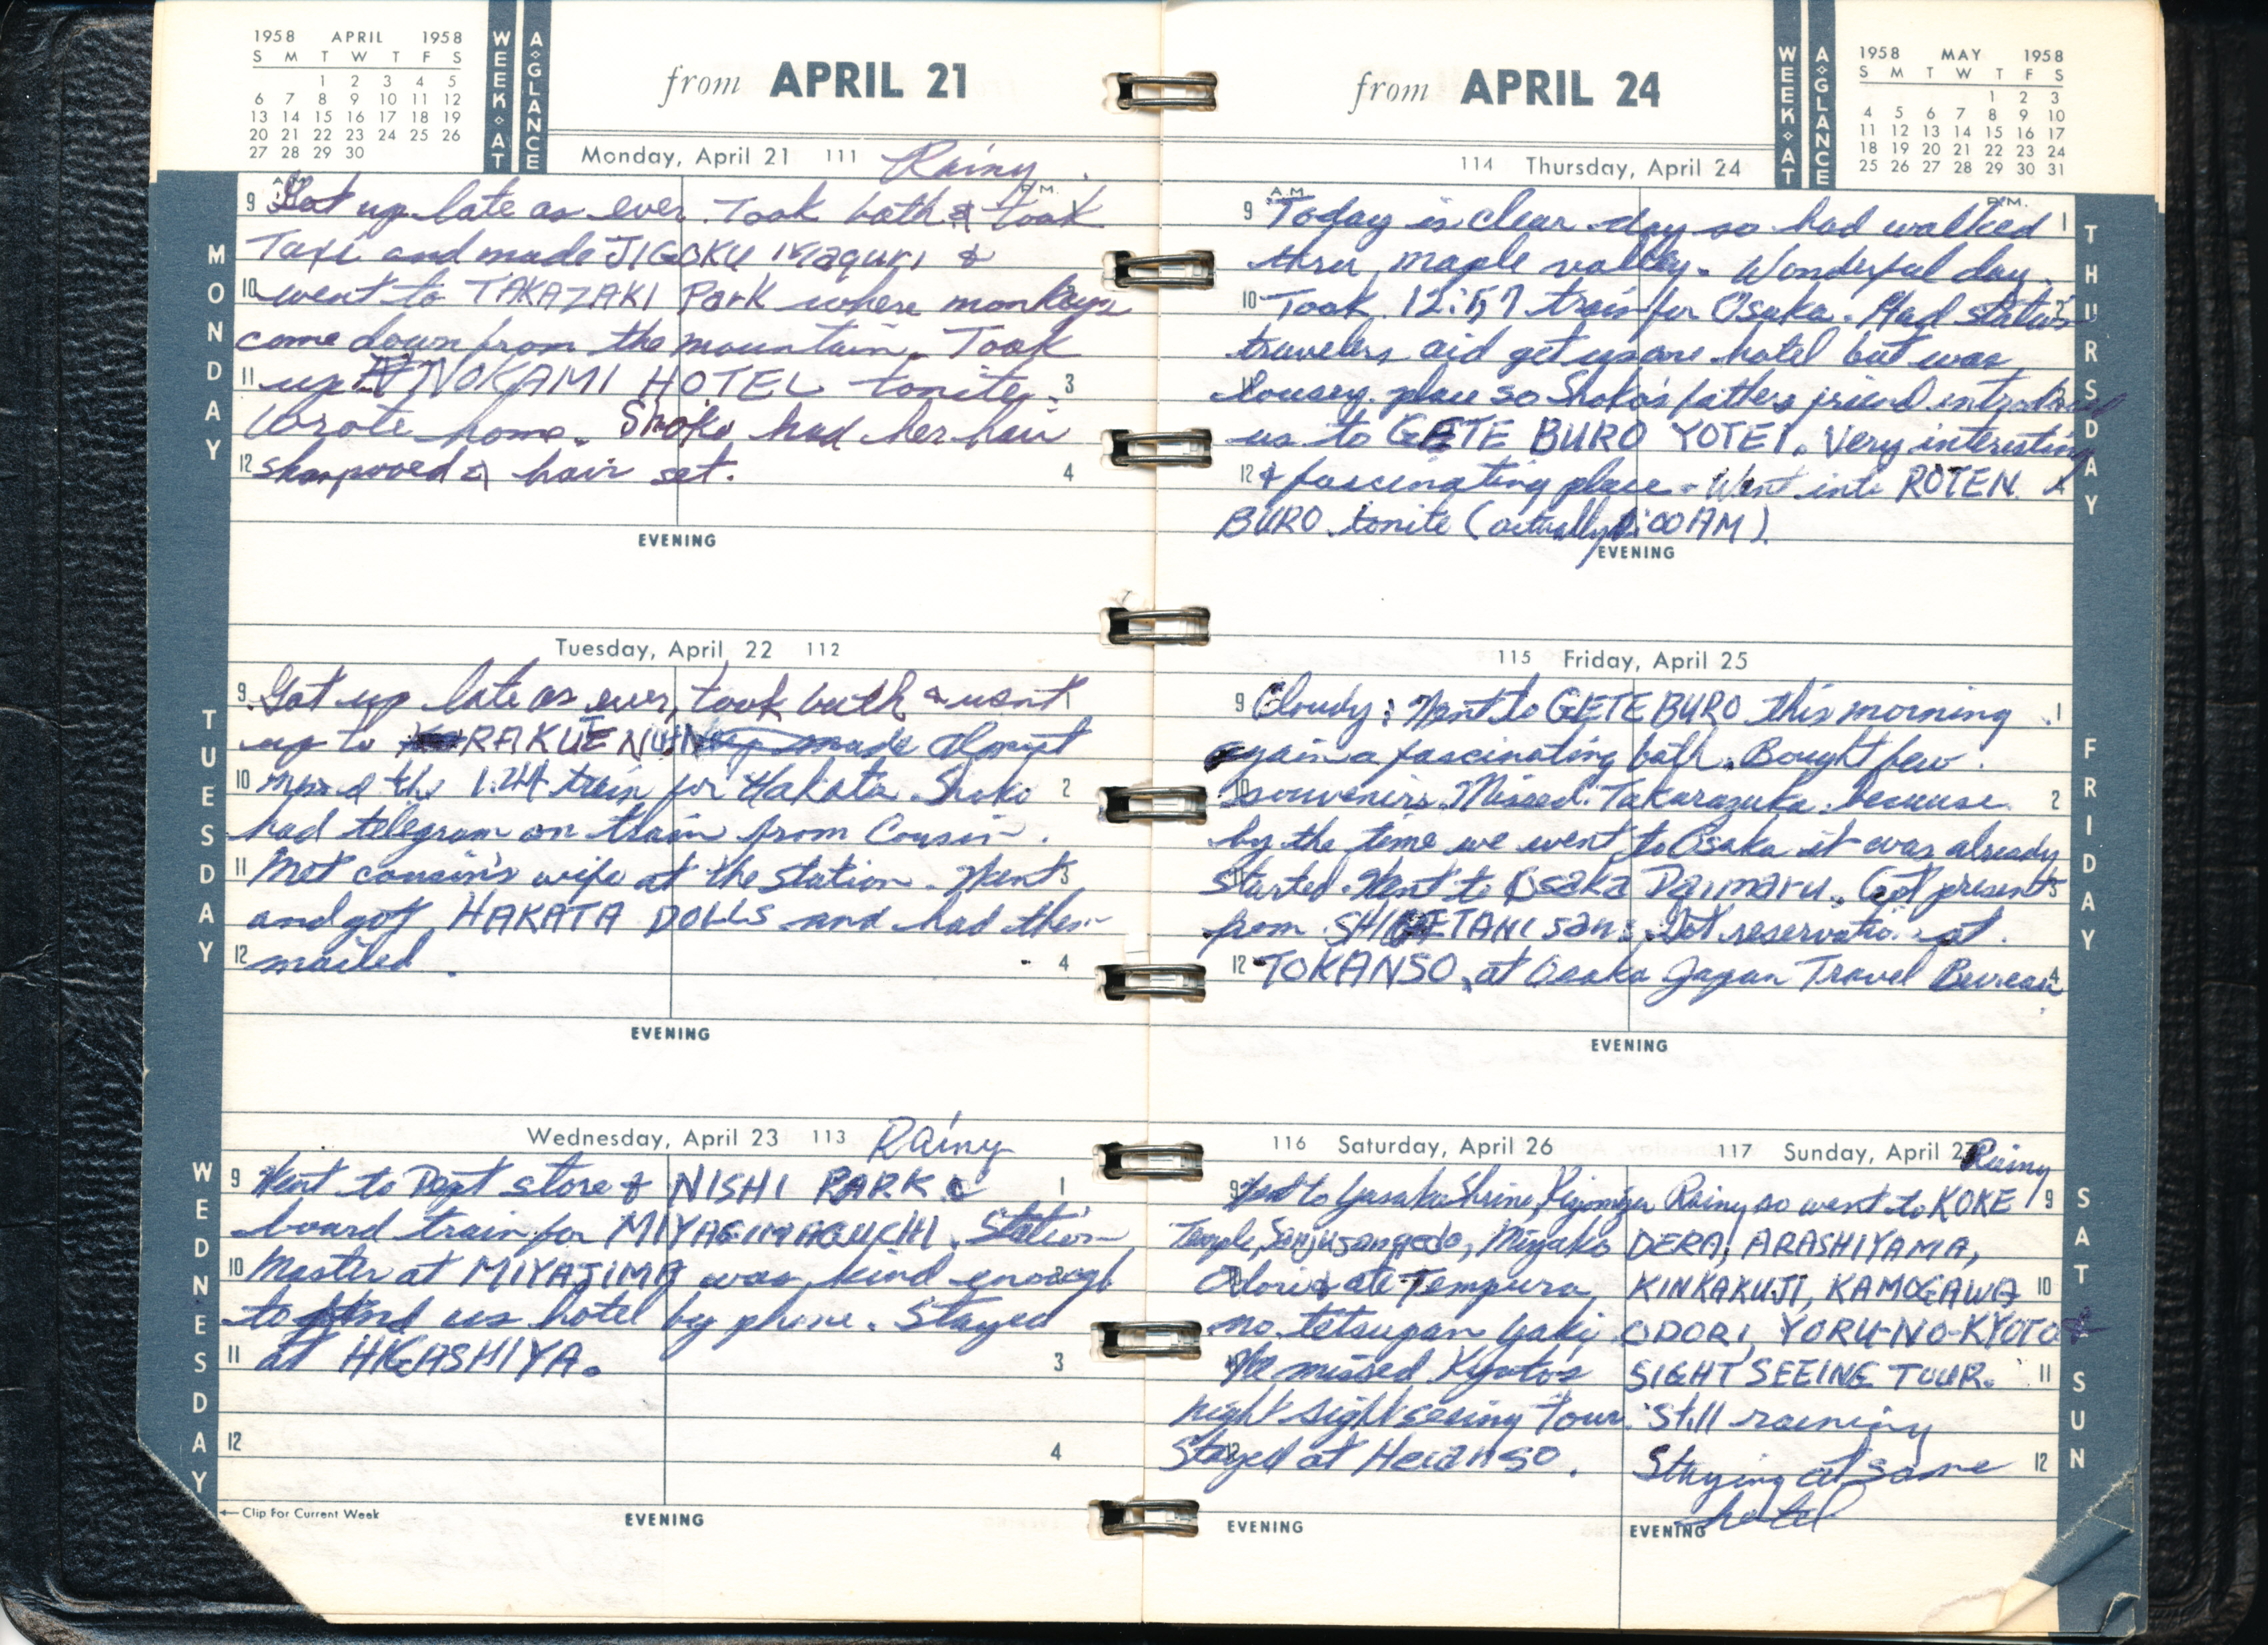 1958 APRIL 1958
S M T W T F S
1 2 3 4 5
6 7 8 9 10 11 12
13 14 15 16 17 18 19
20 21 22 23 24 25 26
27 28 29 30
WEEK AT
A GLANCE
from APRIL 21
Monday, April 21 111 Rainy
A.M. P.M.
9 Got up late as ever. Took bath & took 1
Taxi and made JIGOKU Maguri &
10 went to TAKAZAKI Park where monkeys 2
come down from the mountain. Took
11 up at NOKAMI HOTEL tonite. 3
Wrote home. Shoko had her hair
12 shampooed & hair set. 4
EVENING
MONDAY
Tuesday, April 22 112
9 Got up late as ever, took bath & went 1
up to RAKUTENCHI made almost
10 missed the 1:44 train for Hakata. Shoko 2
had telegram on train from Cousin.
11 Met cousin's wife at the station. Went 3
and got HAKATA DOLLS and had them
12 mailed. 4
EVENING
TUESDAY
Wednesday, April 23 113 Rainy
9 Went to Dept store & NISHI PARK & 1
board train for MIYAGIMAGUCHI. Station
10 Master at MIYAJIMA was kind enough 2
to find us hotel by phone. Stayed
11 at HIGASHIYA. 3
12 4
← Clip For Current Week
EVENING
WEDNESDAY
from APRIL 24
WEEK AT
A GLANCE
1958 MAY 1958
S M T W T F S
1 2 3
4 5 6 7 8 9 10
11 12 13 14 15 16 17
18 19 20 21 22 23 24
25 26 27 28 29 30 31
114 Thursday, April 24
A.M. P.M.
9 Today is clear day so had walked 1
thru maple valley. Wonderful day.
10 Took 12:57 train for Osaka. Had station 2
travelers aid get us one hotel but was
lousey place so Shoko's fathers friend introduced
us to GETE BURO YOTEI. Very interesting
12 & fascinating place. Went into ROTEN 4
BURO tonite (actually 1:00 AM).
EVENING
THURSDAY
115 Friday, April 25
9 Cloudy: Went to GETE BURO this morning 1
again a fascinating bath. Bought few
10 souvenirs. Missed Takarazuka because 2
by the time we went to Osaka it was already
started. Went to Osaka Daimaru. Got presents 3
from SHIGETANI san. Got reservation at
12 TOKANSO at Osaka Japan Travel Bureau 4
EVENING
FRIDAY
116 Saturday, April 26
9 Went to Yasaka Shrine, Kiyomizu
Temple, Sanjusangedo, Miyako
Odori & ate Tempura,
no tetsugan yaki
We missed Kyoto's
night sightseeing Tour.
12 Stayed at Heianso.
EVENING
117 Sunday, April 27 Rainy
Rainy so went to KOKE 9
DERA, ARASHIYAMA,
KINKAKUJI, KAMOGAWA 10
ODORI, YORU-NO-KYOTO
SIGHT SEEING TOUR. 11
Still raining
Staying at same 12
hotel
EVENING
SAT & SUN